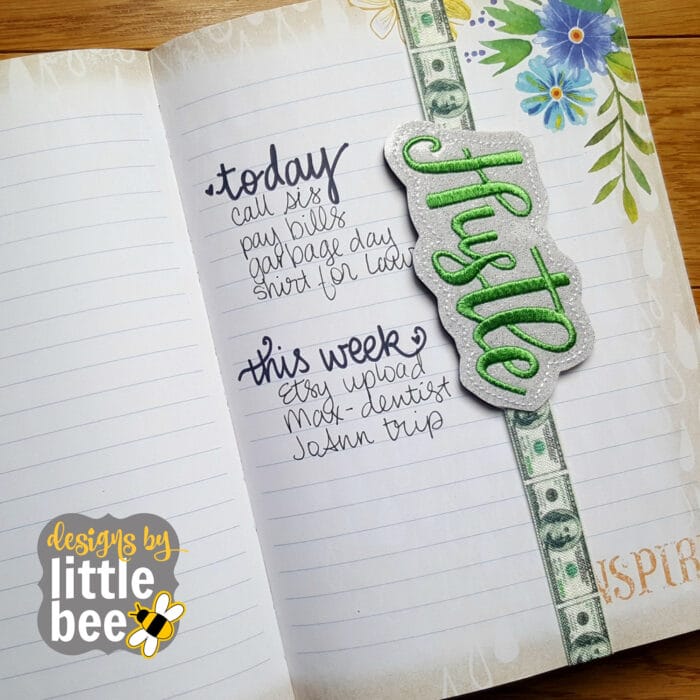 today
call sis
pay bills
garbage day
shirt for
this week
Etsy upload
Max-dentist
JoAnn trip
Hustle
NSPIR
designs by
little
bee